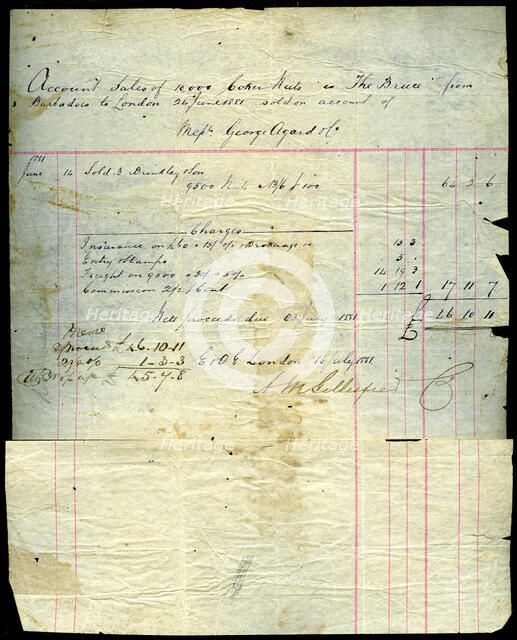 Account Sales of 10000 Coker Nuts "The Bruce" from
Barbadoes to London 24 June 1881 sold on account of
Messrs George Agard & Co
1881
June 14 Sold Brinkley & Son
9500 Nuts 13/6 100 64 2 6
Charges
Insurance on £60 15/ % & Brokerage 13 3
Entry & Stamps 5 .
Freight on 9500 14 19 3
Commission 2½ Cent 1 12 1 17 11 7
Nett proceeds due July 1881 £ 46 10 11
£46-10-11
1-3-3 E & O E London 16 July 1881
£ 45-7-8
heritage
Heritage
Images